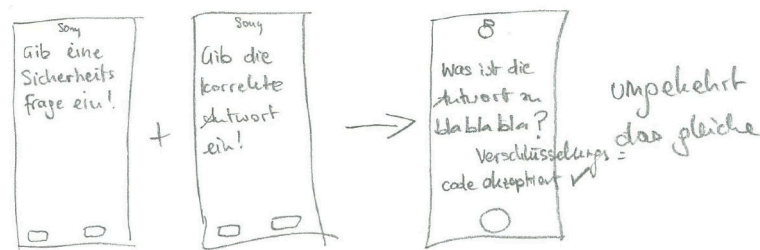 Sony
Gib eine
Sicherheits
frage ein!
+
Sony
Gib die
korrekte
Antwort
ein!
Was ist die
Antwort zu
bla bla bla?
Verschlüsselungs=
code akzeptiert ✓
umgekehrt
das gleiche